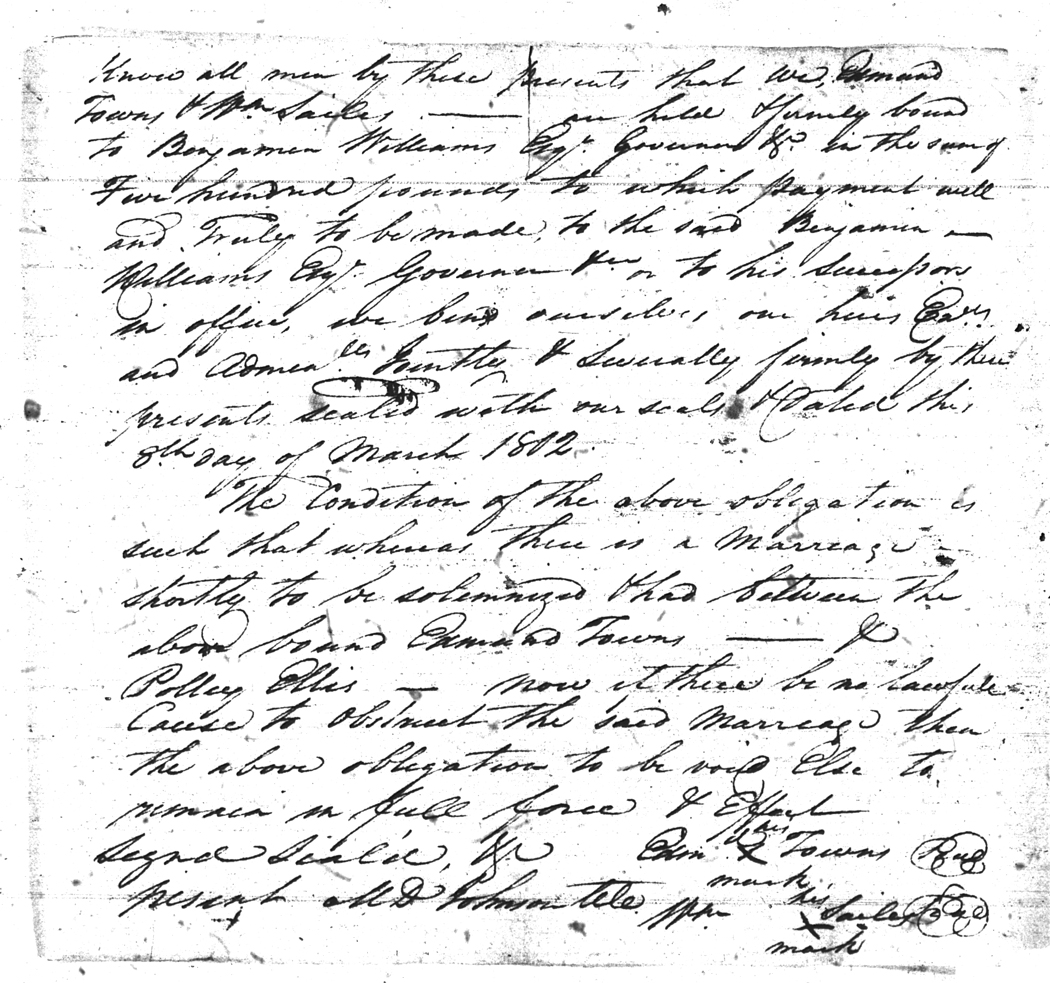 Know all men by these presents that we, Edmund
Towns & Wm Sailes —— are held & firmly bound
to Benjamin Williams Esqr. Governor &c in the sum of
Five hundred pounds to which payment well
and Truly to be made, to the said Benjamin —
Williams Esqr. Governor &c or to his successors
in office, we bind ourselves our heirs Exrs.
and Admrs. Jointly & Severally firmly by these
presents sealed with our seals & Dated this
8th day of March 1802.
The Condition of the above obligation is
such that whereas there is a Marriage —
shortly to be solemnized & had between the
above bound Edmund Towns —— &
Polley Ellis — now if there be no lawfull
Cause to Obstruct the said Marriage then
the above obligation to be void Else to
remain in full force & Effect
Signd Seal'd, &c Edm his X Towns Seal
mark
present M D Johnson
Wm his X Sailes Seal
mark